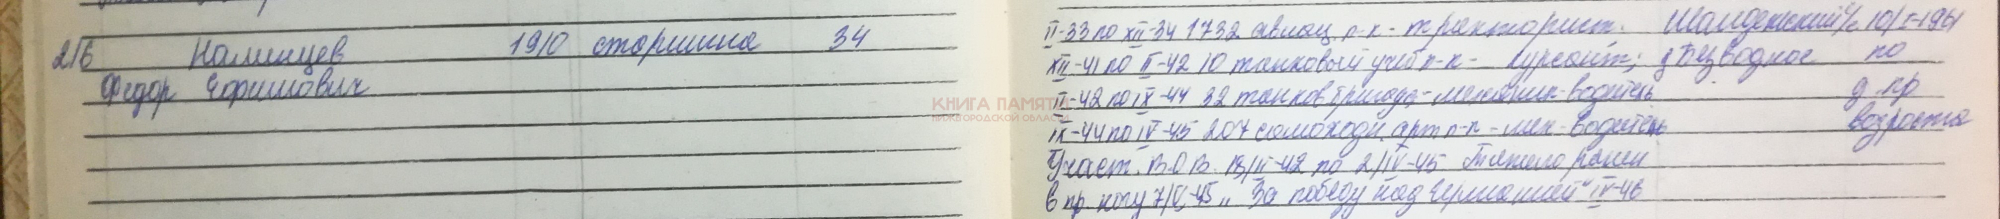 216 Наминцев 1910 старшина 34
Федор Ефимович
II-33 по XII-34 1732 авиац. п-к - тракторист. с/с 10/I-1961
XII-41 по II-42 10 танковый учеб п-к - курсант; д Безводное по
II-42 по IX-44 32 танков бригада - механик-водитель д. пр
IX-44 по IV-45 207 самоходн. арт п-п - мех-водитель возраста
Участ. В.О.В. 13/II-42 по 2/IV-45 Тяжело ранен
в пр. ногу 7/V-45 „За победу над Германией“ IV-46
КНИГА ПАМЯТИ
НИЖЕГОРОДСКОЙ ОБЛАСТИ